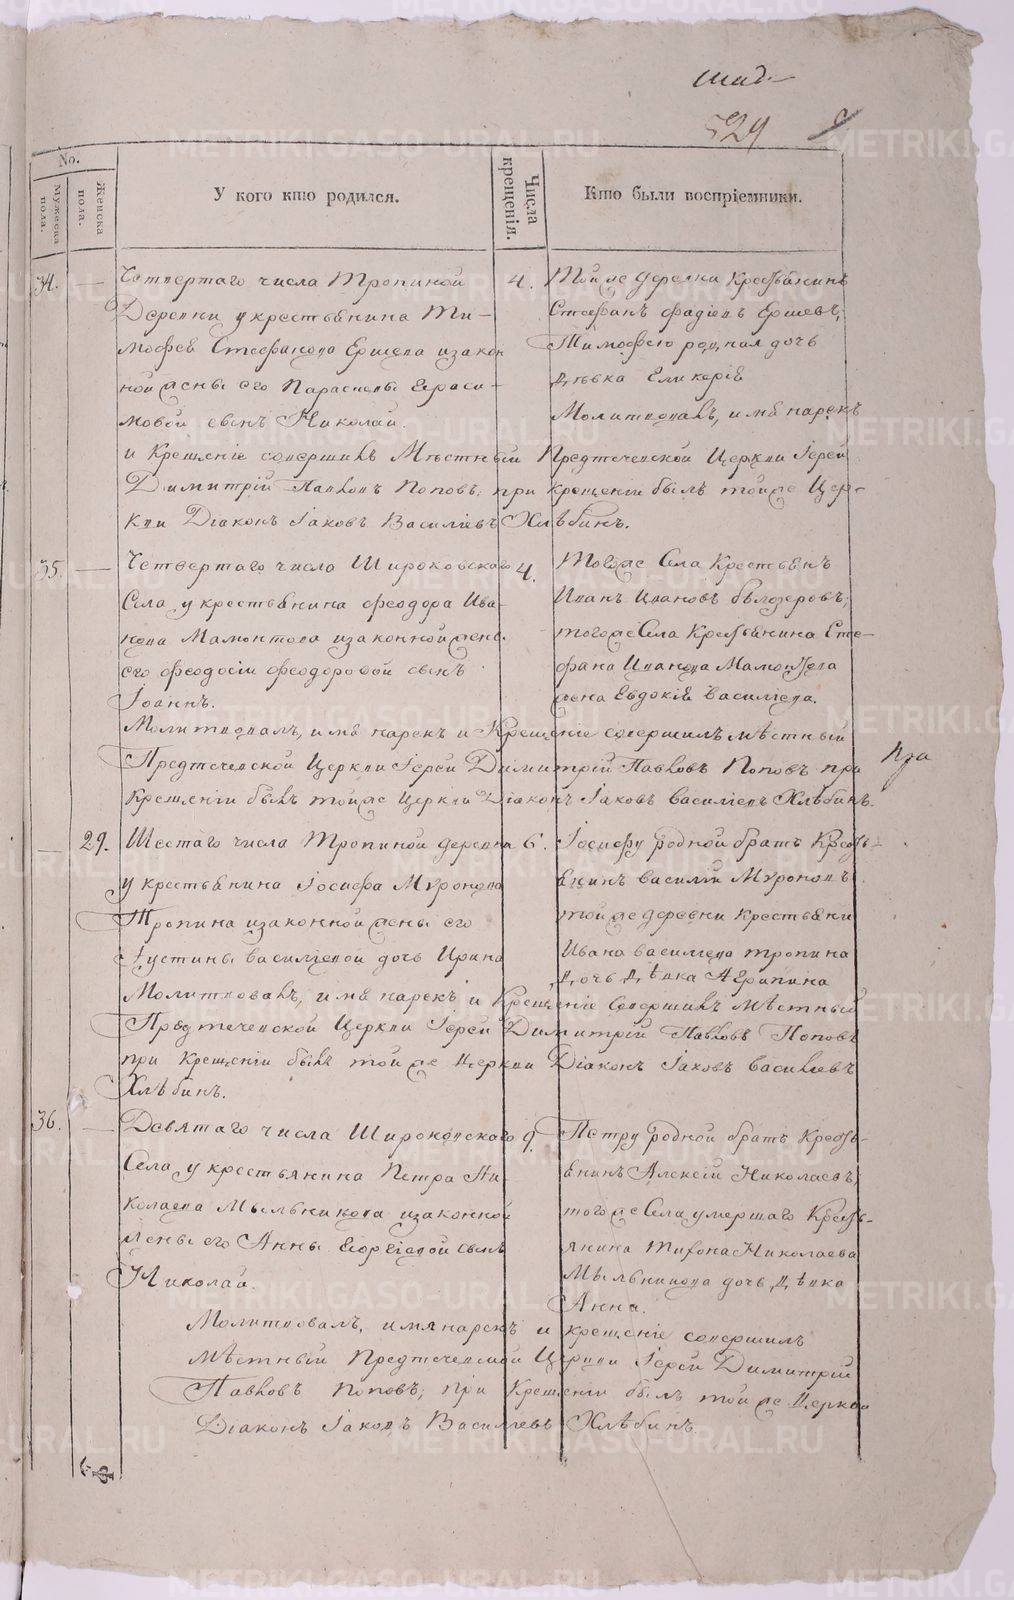 529
No.
Мужеска пола.
Женска пола.
У кого кто родился.
Числа крещенія.
Кто были воспріемники.
34. — Четвертаго числа Тропиной
Деревни у крестьянина Ти-
мофея Стефанова Ершева изакон
ной жены его Параскевы Гераси-
мовой сынъ Николай.
4. Тойже деревни Крестьянинъ
Стефанъ Фадіевъ Ершевъ;
Тимофею родная дочь
дѣвка Гликерія
Молитвовалъ, имя нарекъ
и Крещеніе совершилъ Мѣстный Предтечевской Церкви Іерей
Димитрій Павловъ Поповъ, при крещеніи былъ тойже Цер-
кви Діаконъ Іаковъ Василіевъ Хлѣбинъ.
35. — Четвертаго числа Широковскаго
Села, у крестьянина Феодора Ива-
нова Мамонтова изаконной жены
его Феодосіи Феодоровой сынъ
Іоаннъ.
4. Тогоже Села Крестьянъ
Иванъ Ивановъ Бѣлозеровъ;
тогоже Села Крестьянина Сте-
фана Иванова Мамонтова
жена Евдокія Василіева.
Молитвовалъ, имя нарекъ и Крещеніе совершилъ мѣстный
Предтечевской Церкви Іерей Димитрій Павловъ Поповъ при
Крещеніи былъ тойже Церкви Діаконъ Іаковъ Василіевъ Хлѣбинъ.
— 29. Шестаго числа Тропиной деревни
у крестьянина Іосифа Миронова
Тропина изаконной жены его
Іустины Василіевой дочь Ирина
6. Іосифу родной братъ Кресть-
янинъ Василій Мироновъ
тойже деревни Крестьяни
Ивана Василіева Тропина
дочь дѣвка Агрипина
Молитвовалъ, имя нарекъ и Крещеніе Совершилъ Мѣстный
Предтечевской Церкви Іерей Димитрій Павловъ Поповъ
при Крещеніи былъ тойже Церкви Діаконъ Іаковъ Василіевъ
Хлѣбинъ.
36. — Девятаго числа Широковскаго
Села, у крестьянина Петра Ни-
колаева Мыльникова изаконной
жены его Анны Георгіевой сынъ
Николай.
9. Петру родной братъ Кресть-
янинъ Алексій Николаевъ,
тогоже Села умершаго Кресть-
янина Тифона Николаева
Мыльникова дочь, дѣвка
Анна.
Молитвовалъ, имя нарекъ и крещеніе совершилъ
мѣстный Предтечевской Церкви Іерей Димитрій
Павловъ Поповъ; при Крещеніи былъ тойже Церкви
Діаконъ Іаковъ Василіевъ Хлѣбинъ.
METRIKI.GASO-URAL.RU